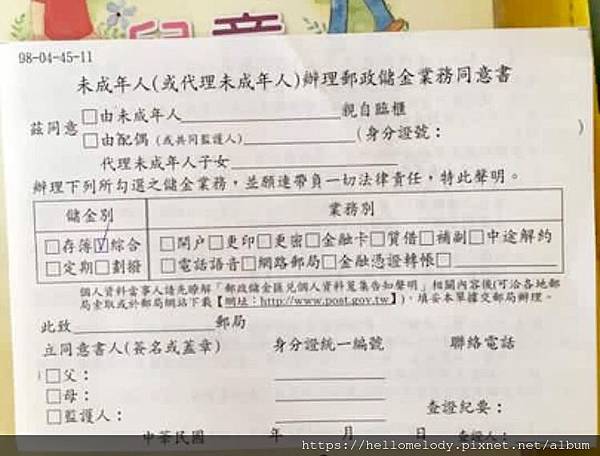 兒童
98-04-45-11
未成年人(或代理未成年人)辦理郵政儲金業務同意書
茲同意 □由未成年人 親自臨櫃
□由配偶(或共同監護人) (身分證號: )
代理未成年人子女
辦理下列所勾選之儲金業務,並願連帶負一切法律責任,特此聲明。
儲金別 業務別
□存簿☑綜合 □開戶□更印□更密□金融卡□質借□補副□中途解約
□定期□劃撥 □電話語音□網路郵局□金融憑證轉帳□
個人資料當事人請先瞭解「郵政儲金匯兌個人資料蒐集告知聲明」相關內容後(可洽各地郵
局索取或於郵局網站下載【網址:http://www.post.gov.tw】),填妥本單據交郵局辦理。
此致 郵局
立同意書人(簽名或蓋章) 身分證統一編號 聯絡電話
□父:
□母:
□監護人: 查證紀要:
中華民國 年 月 日 查證人:
https://hellomelody.pixnet.net/album